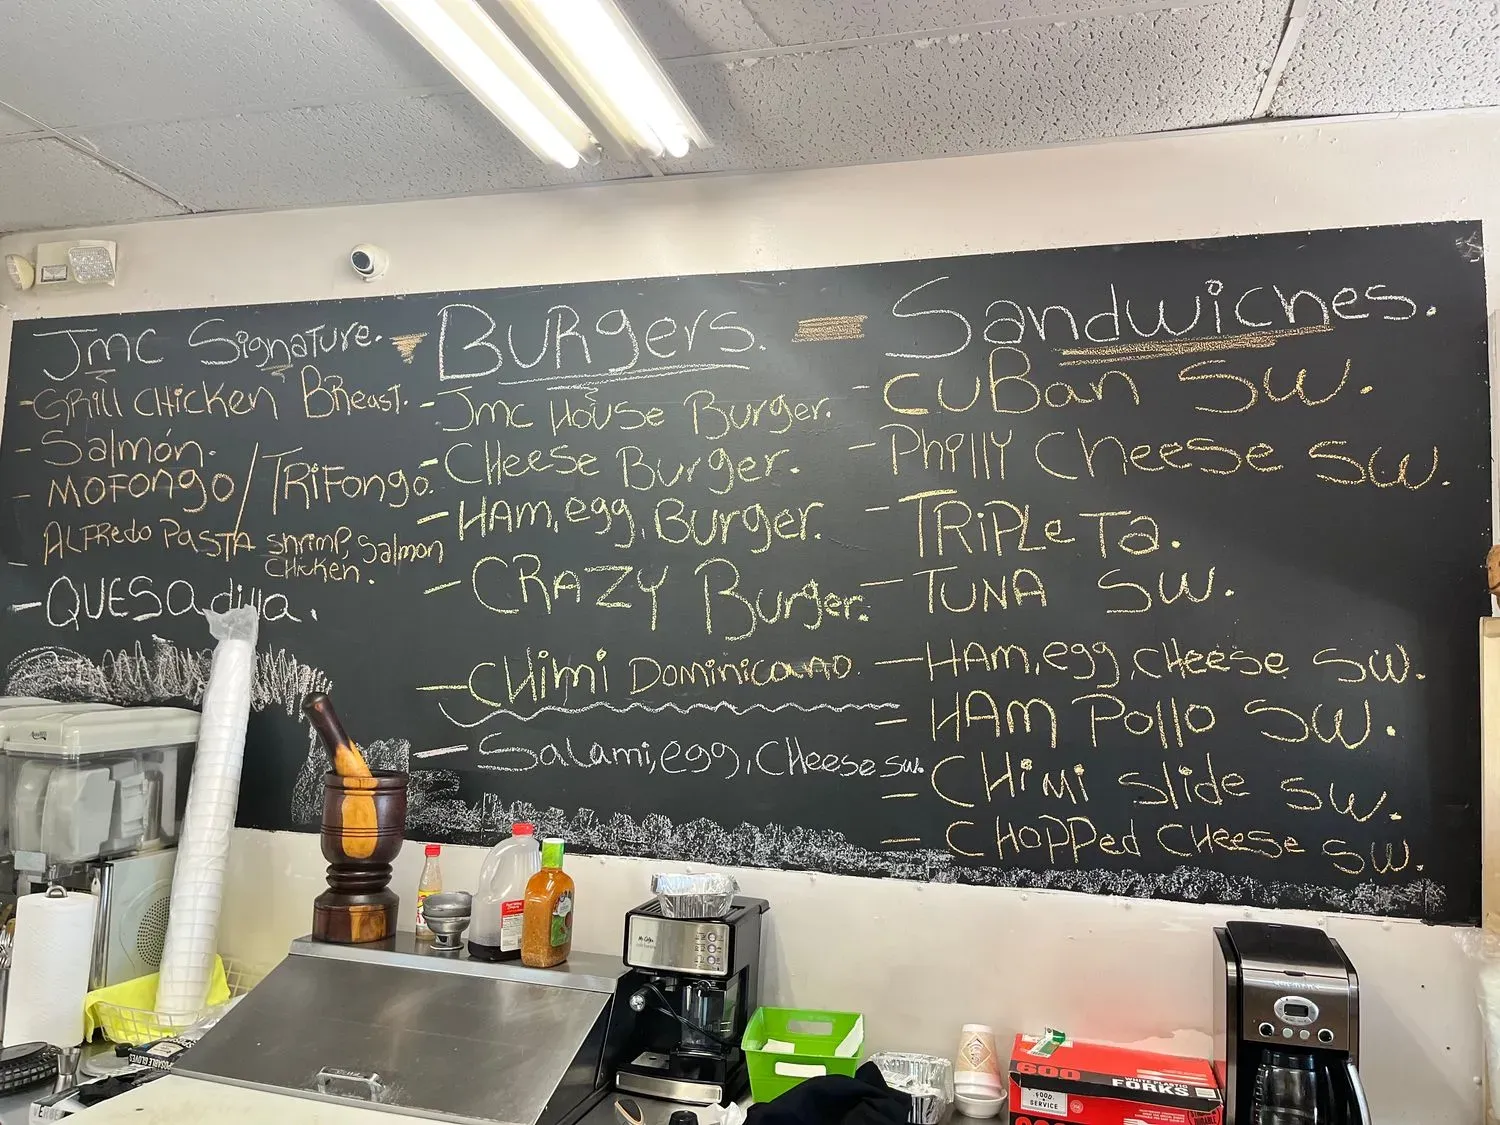 Jmc Signature.
- Grill Chicken Breast.
- Salmón.
- Mofongo / Trifongo.
- Alfredo Pasta shrimp, Salmon
Chicken.
- Quesadilla.
Burgers.
- Jmc House Burger.
- Cheese Burger.
- Ham, egg, Burger.
- Crazy Burger.
- Chimi Dominicano.
- Salami, egg, Cheese sw.
Sandwiches.
- Cuban SW.
- Philly Cheese SW.
- Tripleta.
- Tuna SW.
- Ham, egg, Cheese SW.
- Ham Pollo SW.
- Chimi Slide SW.
- Chopped Cheese SW.
Mr. Coffee
600
WHITE PLASTIC
FORKS
FOOD
SERVICE